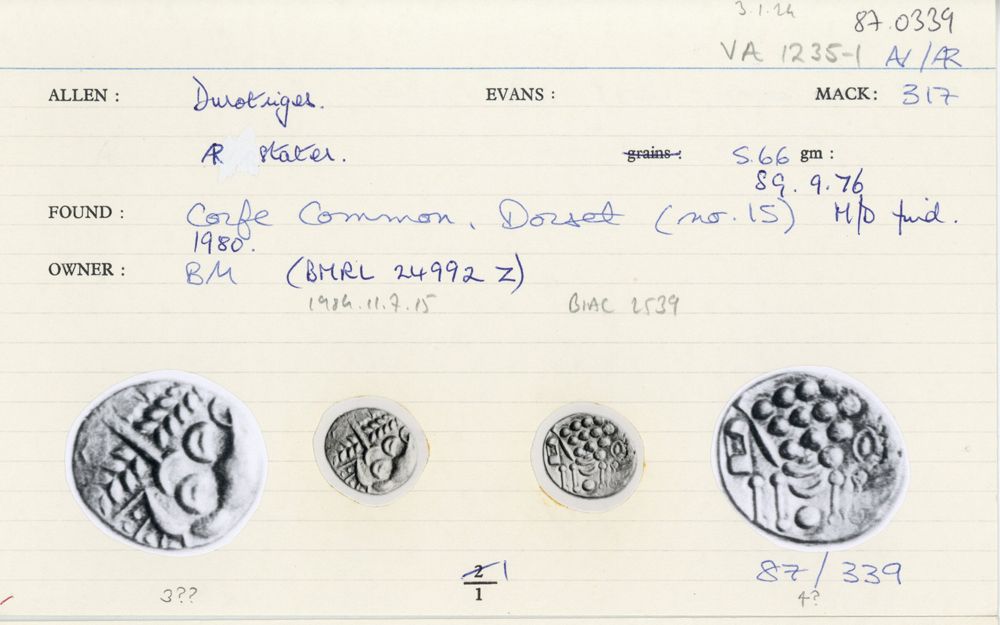 3.1.24 87.0339
VA 1235-1 AV/AR
ALLEN : Durotriges. EVANS : MACK: 317
AR stater. grains : 5.66 gm :
S9. 9.76
FOUND : Corfe Common, Dorset (no. 15) M/D find.
1980.
OWNER : BM (BMRL 24992 Z)
1984.11.7.15 BIAC 2539
2 1
1
87/339
3?? 4?